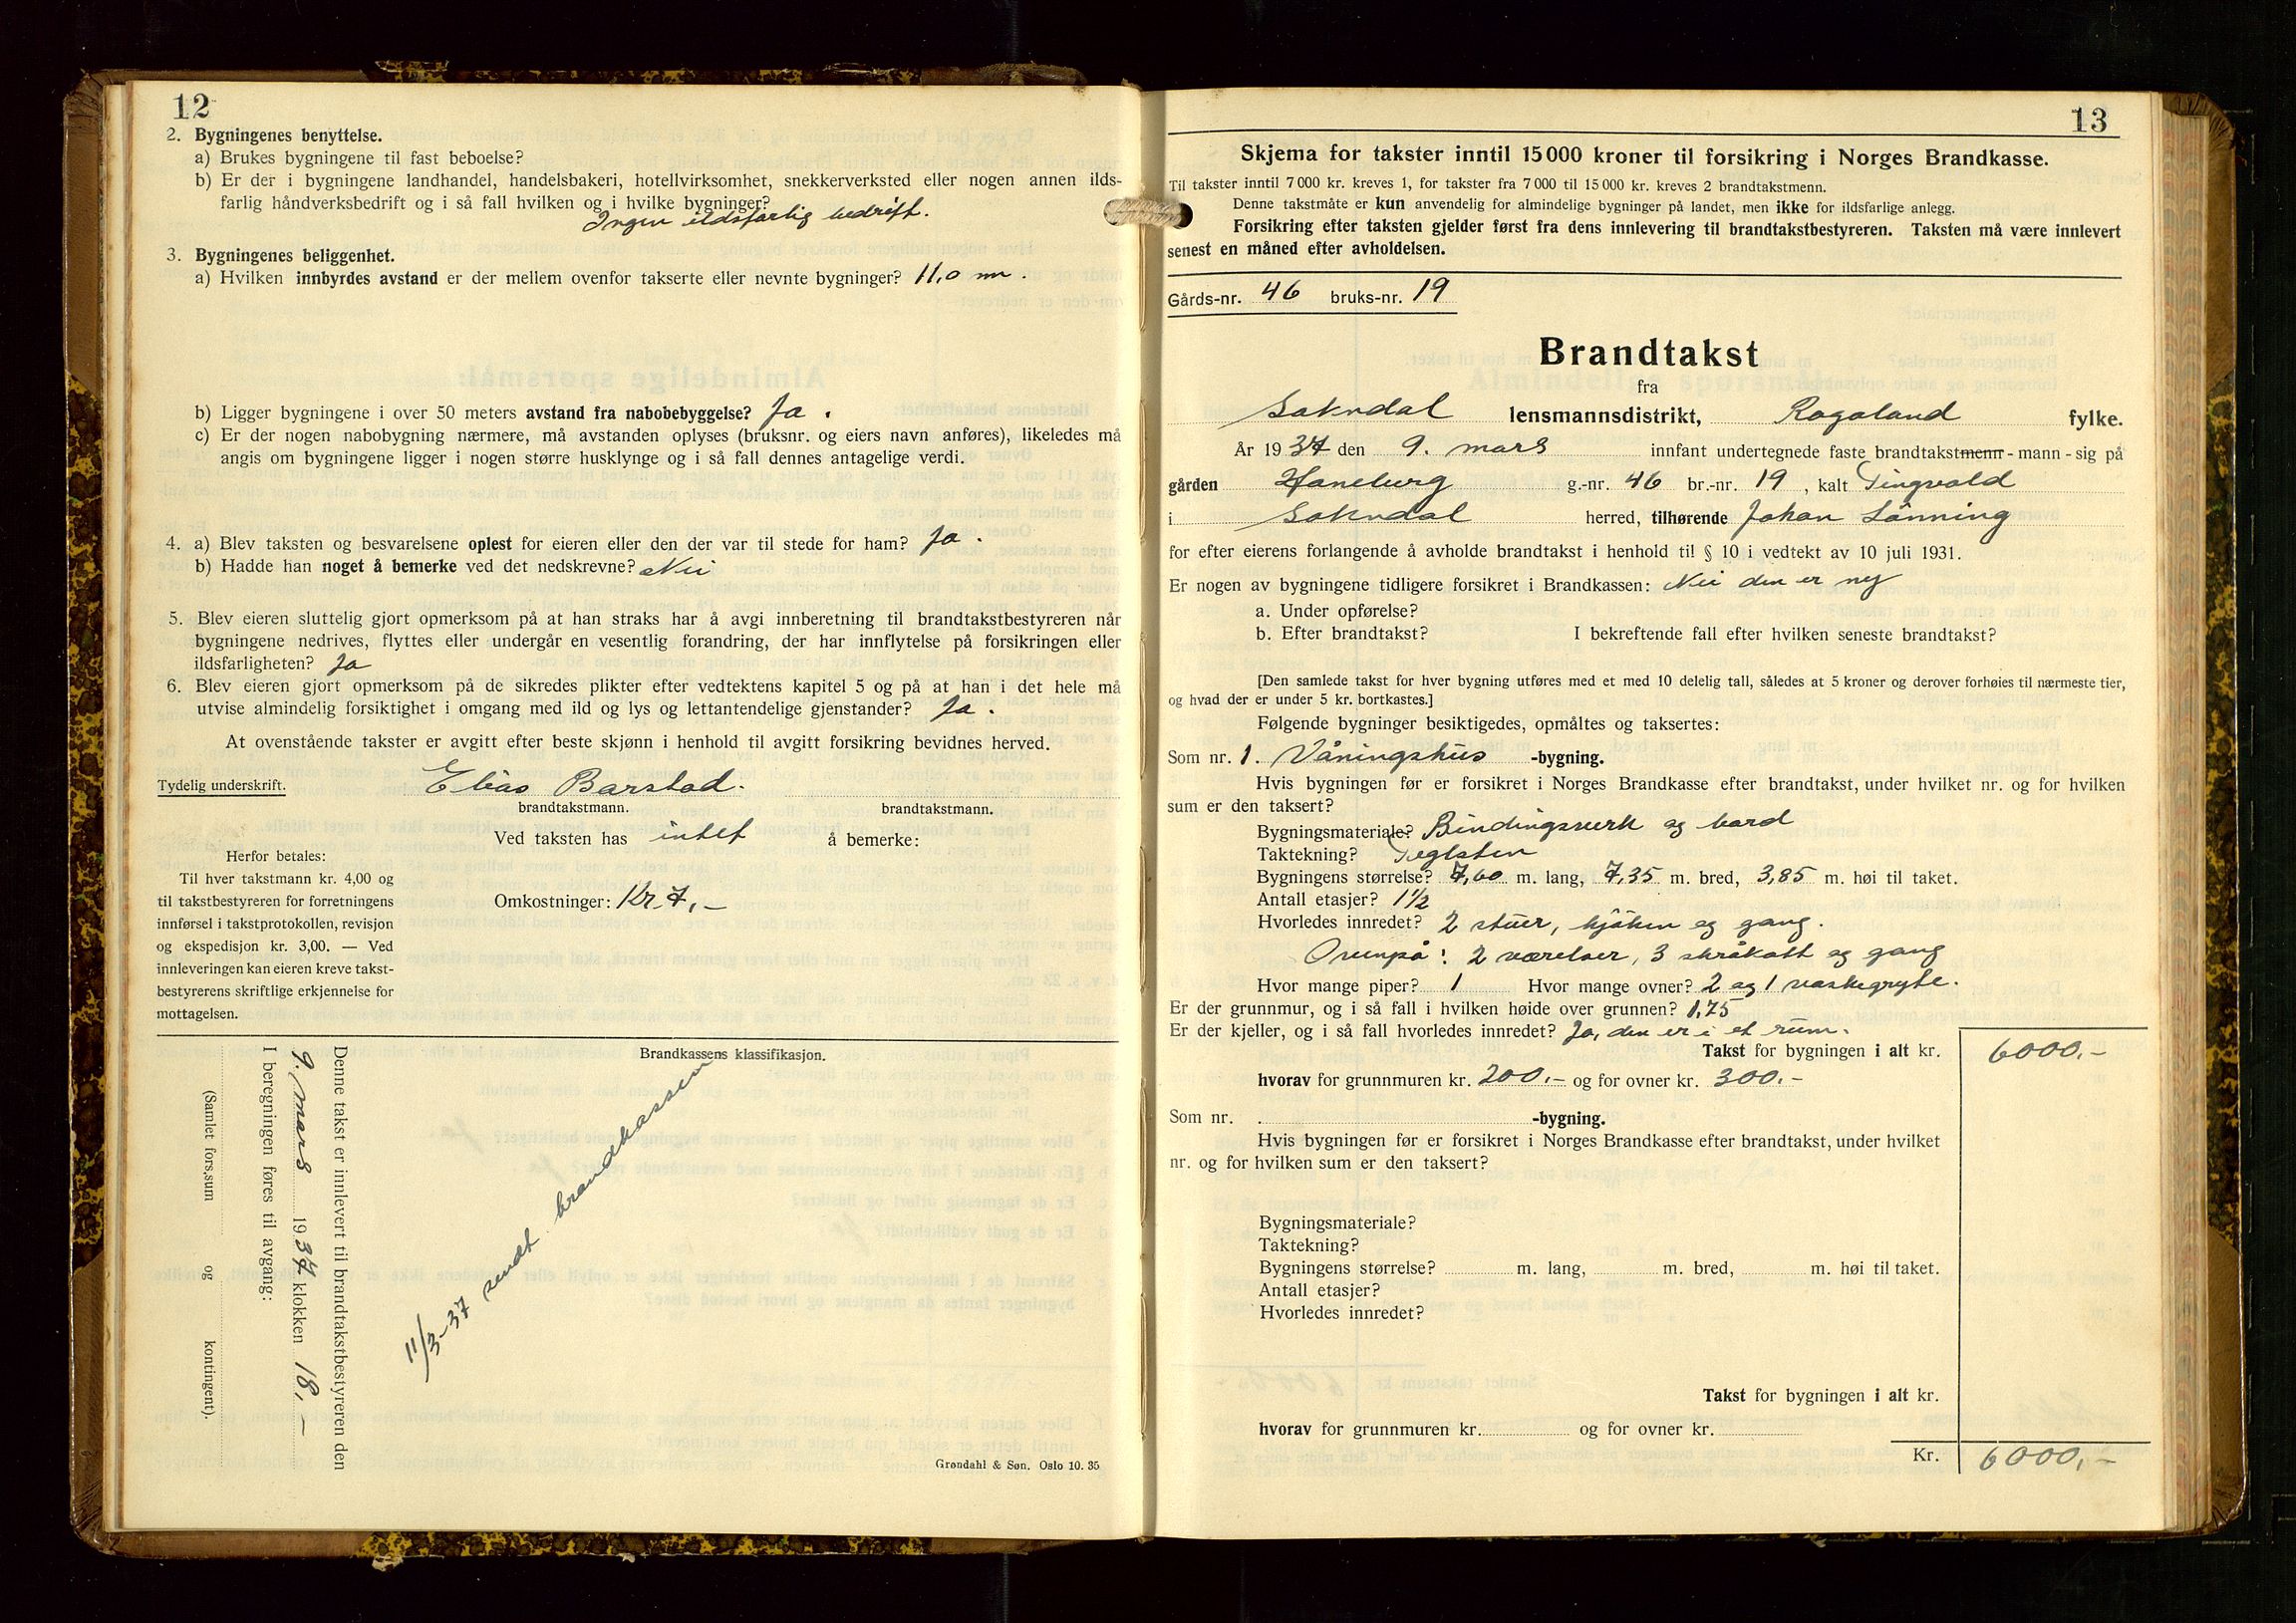 12
2. Bygningenes benyttelse.
a) Brukes bygningene til fast beboelse?
b) Er der i bygningene landhandel, handelsbakeri, hotellvirksomhet, snekkerverksted eller nogen annen ilds-
farlig håndverksbedrift og i så fall hvilken og i hvilke bygninger?
Ingen ildsfarlig bedrift.
3. Bygningenes beliggenhet.
a) Hvilken innbyrdes avstand er der mellem ovenfor takserte eller nevnte bygninger? 11,0 m.
b) Ligger bygningene i over 50 meters avstand fra nabobebyggelse? Ja.
c) Er der nogen nabobygning nærmere, må avstanden oplyses (bruksnr. og eiers navn anføres), likeledes må
angis om bygningene ligger i nogen større husklynge og i så fall dennes antagelige verdi.
4. a) Blev taksten og besvarelsene oplest for eieren eller den der var til stede for ham? Ja.
b) Hadde han noget å bemerke ved det nedskrevne? Nei
5. Blev eieren sluttelig gjort opmerksom på at han straks har å avgi innberetning til brandtakstbestyreren når
bygningene nedrives, flyttes eller undergår en vesentlig forandring, der har innflytelse på forsikringen eller
ildsfarligheten? Ja
6. Blev eieren gjort opmerksom på de sikredes plikter efter vedtektens kapitel 5 og på at han i det hele må
utvise almindelig forsiktighet i omgang med ild og lys og lettantendelige gjenstander? Ja.
At ovenstående takster er avgitt efter beste skjønn i henhold til avgitt forsikring bevidnes herved.
Tydelig underskrift. Elias Barstad.
brandtakstmann. brandtakstmann.
Ved taksten has intet å bemerke:
Herfor betales:
Til hver takstmann kr. 4,00 og
til takstbestyreren for forretningens
innførsel i takstprotokollen, revisjon
og ekspedisjon kr. 3,00. — Ved
innleveringen kan eieren kreve takst-
bestyrerens skriftlige erkjennelse for
mottagelsen.
Omkostninger: Kr 7,-
Brandkassens klassifikasjon.
11/3-37 sendt brandkassen
Denne takst er innlevert til brandtakstbestyreren den
9. mars 1937 klokken 18,-
I beregningen føres til avgang:
(Samlet fors.sum og kontingent).
Grøndahl & Søn. Oslo 10. 35
13
Skjema for takster inntil 15 000 kroner til forsikring i Norges Brandkasse.
Til takster inntil 7 000 kr. kreves 1, for takster fra 7 000 til 15 000 kr. kreves 2 brandtakstmenn.
Denne takstmåte er kun anvendelig for almindelige bygninger på landet, men ikke for ildsfarlige anlegg.
Forsikring efter taksten gjelder først fra dens innlevering til brandtakstbestyreren. Taksten må være innlevert
senest en måned efter avholdelsen.
Gårds-nr. 46 bruks-nr. 19
Brandtakst
fra
Sokndal lensmannsdistrikt, Rogaland fylke.
År 1937 den 9. mars innfant undertegnede faste brandtakstmenn - mann - sig på
gården Haneberg g.-nr. 46 br.-nr. 19, kalt Tingvold
i Sokndal herred, tilhørende Johan Lönning
for efter eierens forlangende å avholde brandtakst i henhold til § 10 i vedtekt av 10 juli 1931.
Er nogen av bygningene tidligere forsikret i Brandkassen: Nei den er ny
a. Under opførelse?
b. Efter brandtakst? I bekreftende fall efter hvilken seneste brandtakst?
[Den samlede takst for hver bygning utføres med et med 10 delelig tall, således at 5 kroner og derover forhøies til nærmeste tier,
og hvad der er under 5 kr. bortkastes.]
Følgende bygninger besiktigedes, opmåltes og taksertes:
Som nr. 1. Våningshus -bygning.
Hvis bygningen før er forsikret i Norges Brandkasse efter brandtakst, under hvilket nr. og for hvilken
sum er den taksert?
Bygningsmateriale? Bindingsverk og bord
Taktekning? Teglsten
Bygningens størrelse? 7,60 m. lang, 7,35 m. bred, 3,85 m. høi til taket.
Antall etasjer? 1½
Hvorledes innredet? 2 stuer, kjöken og gang.
Ovenpå: 2 værelser, 3 skråkott og gang
Hvor mange piper? 1 Hvor mange ovner? 2 og 1 vaskegryte.
Er der grunnmur, og i så fall i hvilken høide over grunnen? 1,75
Er der kjeller, og i så fall hvorledes innredet? Ja, den er i et rum.
Takst for bygningen i alt kr. 6000,-
hvorav for grunnmuren kr. 200,- og for ovner kr. 300,-
Som nr. . -bygning.
Hvis bygningen før er forsikret i Norges Brandkasse efter brandtakst, under hvilket
nr. og for hvilken sum er den taksert?
Bygningsmateriale?
Taktekning?
Bygningens størrelse? m. lang, m. bred, m. høi til taket.
Antall etasjer?
Hvorledes innredet?
Takst for bygningen i alt kr.
hvorav for grunnmuren kr. og for ovner kr.
Kr. 6000,-